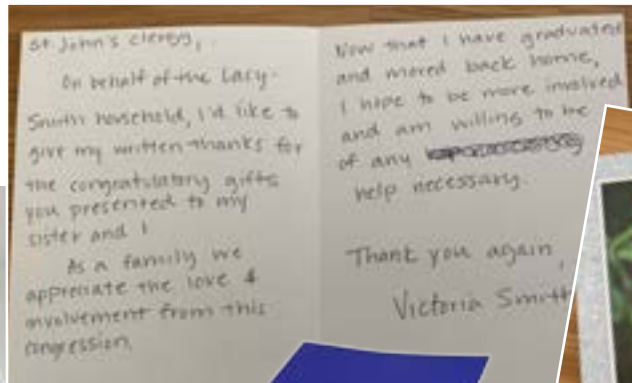 St. John's clergy,
On behalf of the Lacy-
Smith household, I'd like to
give my written thanks for
the congratulatory gifts
you presented to my
sister and I
As a family we
appreciate the love &
involvement from this
congression.
Now that I have graduated
and moved back home,
I hope to be more involved
and am willing to be
of any
help necessary.
Thank you again,
Victoria Smith